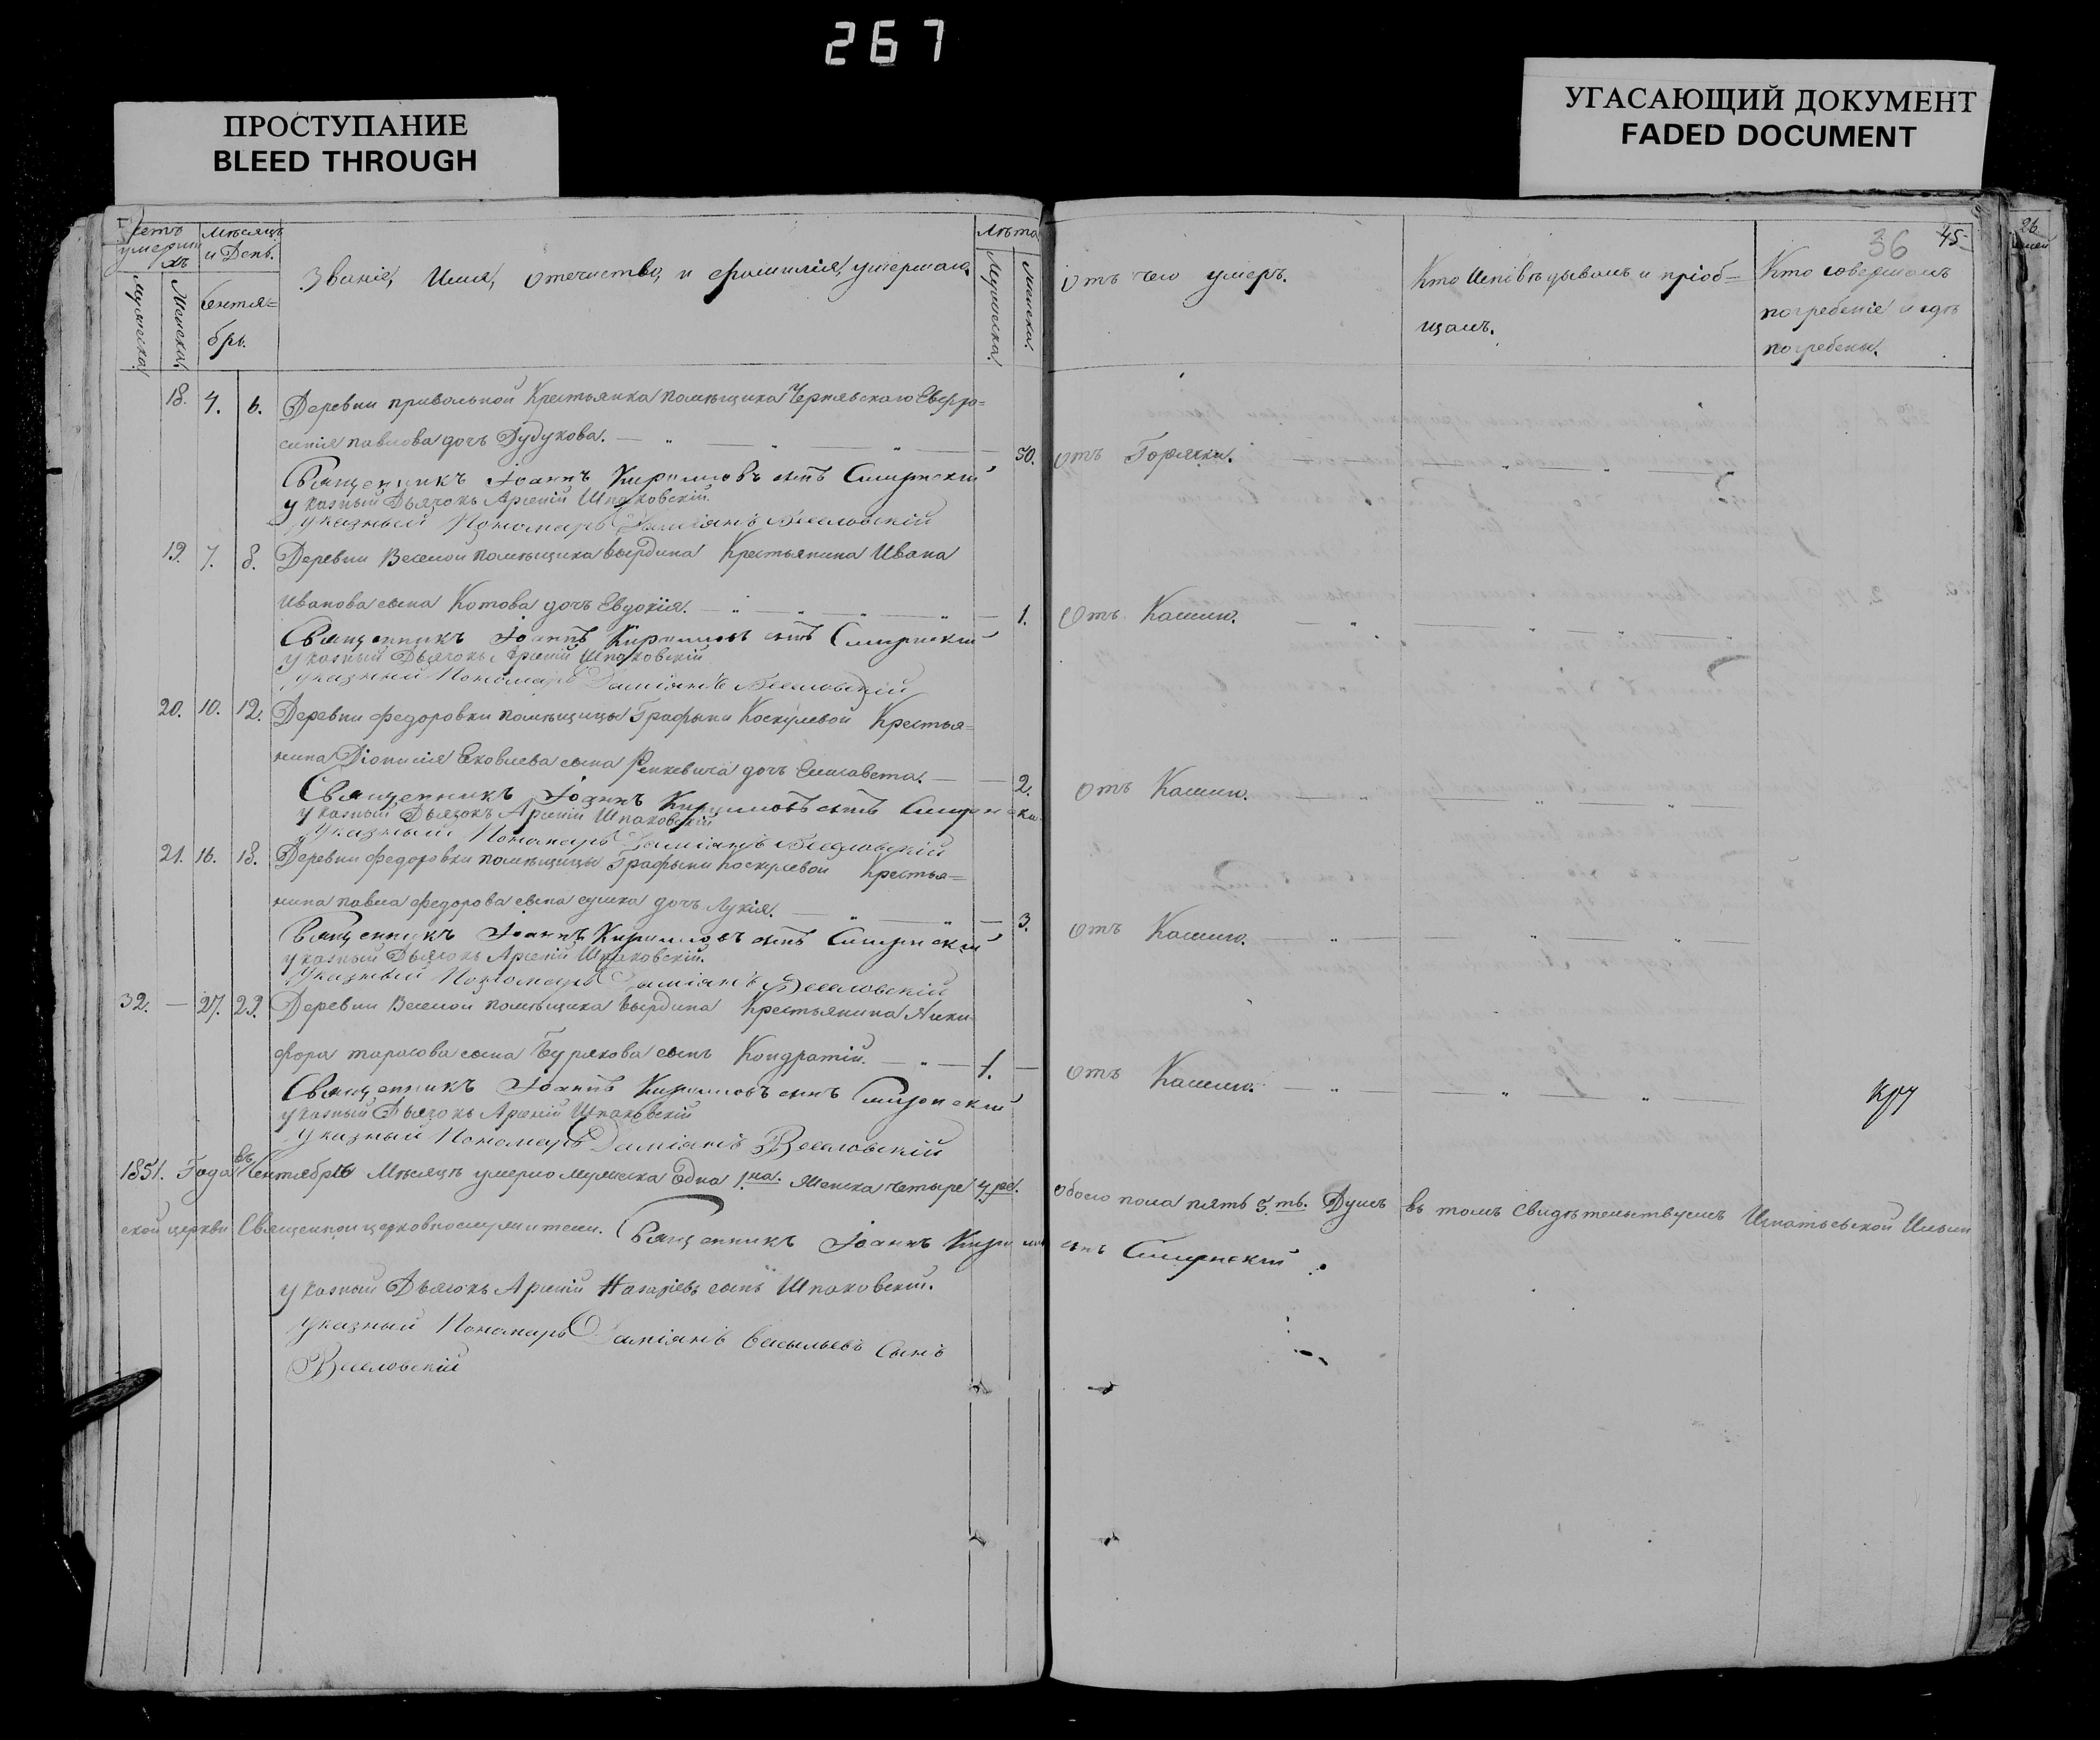 267
ПРОСТУПАНИЕ
BLEED THROUGH
УГАСАЮЩИЙ ДОКУМЕНТ
FADED DOCUMENT
36 45
26
Счетъ умершихъ
Мужеска Женска
Мѣсяцъ и День.
Сентябрь.
Званіе, Имя, Отечиство, и фамилія, умершаго.
Лѣта
Мужеска. Женска.
Отъ чего умеръ.
Кто Исповѣдывалъ и пріоб=
щалъ.
Кто совершалъ
погребеніе и гдѣ
погребены.
18. 4. 6. Деревни привольной Крестьянка помѣщика Чернявскаго Евдо=
павлова дочь Дудукова. 50. Отъ Горячки.
Священникъ Іоаннъ Кирилловъ сынъ Смирнскій
указный Дьячокъ Арсеній Шпаковскій.
указный Пономарь Даміянъ Веселовскій
19. 7. 8. Деревни Веселой помѣщика Крестьянина Ивана
Иванова сына Котова дочь Евдокія. 1. Отъ Кашлю.
Священникъ Іоаннъ Кирилловъ сынъ Смирнскій
указный Дьячокъ Арсеній Шпаковскій
указный Пономарь Даміянъ Веселовскій
20. 10. 12. Деревни федоровки помѣщицы Графыни Коскулевой Крестья=
нина Діонисія Яковлева сына дочь Елисавета. 2. Отъ Кашлю.
Священникъ Іоаннъ Кирилловъ сынъ Смирнскій
указный Дьячокъ Арсеній Шпаковскій
указный Пономарь Даміянъ Веселовскій
21. 16. 18. Деревни федоровки помѣщицы Графыни Коскулевой Крестья=
нина павла федорова сына дочь Лукія. 3. Отъ Кашлю.
Священникъ Іоаннъ Кирилловъ сынъ Смирнскій
указный Дьячокъ Арсеній Шпаковскій.
указный Пономарь Даміянъ Веселовскій
32. 27. 29. Деревни Веселой помѣщика Крестьянина Ники=
фора тарасова сына Бурякова сынъ Кондратій. 1. Отъ Кашлю.
Священникъ Іоаннъ Кирилловъ сынъ Смирнскій
указный Дьячокъ Арсеній Шпаковскій
указный Пономарь Даміянъ Веселовскій
1851. Года въ Сентябрѣ Мѣсяцѣ умерло мужеска Одна 1.на. Женска четыре 4.ре. обоего пола пять 5.ть. Душъ въ томъ свидѣтельствуемъ Игнатьевской Ильин
ской церкви Священноцерковнослужители. Священникъ Іоаннъ Кирилловъ сынъ Смирнскій
указный Дьячокъ Арсеній Назаріевъ сынъ Шпаковскій.
указный Пономарь Даміянъ Васильевъ Сынъ
Веселовскій